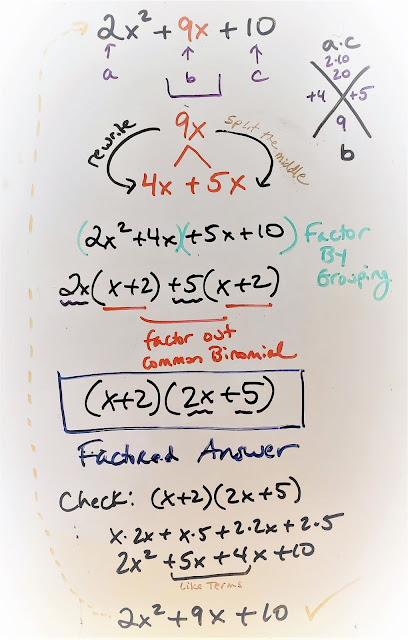 2x² + 9x + 10
a b c
a·c
2·10
20
+4 +5
9
b
9x
rewrite
split the middle
4x + 5x
(2x² + 4x)(+5x + 10)
Factor
By
Grouping
2x(x+2) +5(x+2)
factor out
Common Binomial
(x+2)(2x+5)
Factored Answer
Check: (x+2)(2x+5)
x·2x + x·5 + 2·2x + 2·5
2x² + 5x + 4x + 10
Like Terms
2x² + 9x + 10 ✓